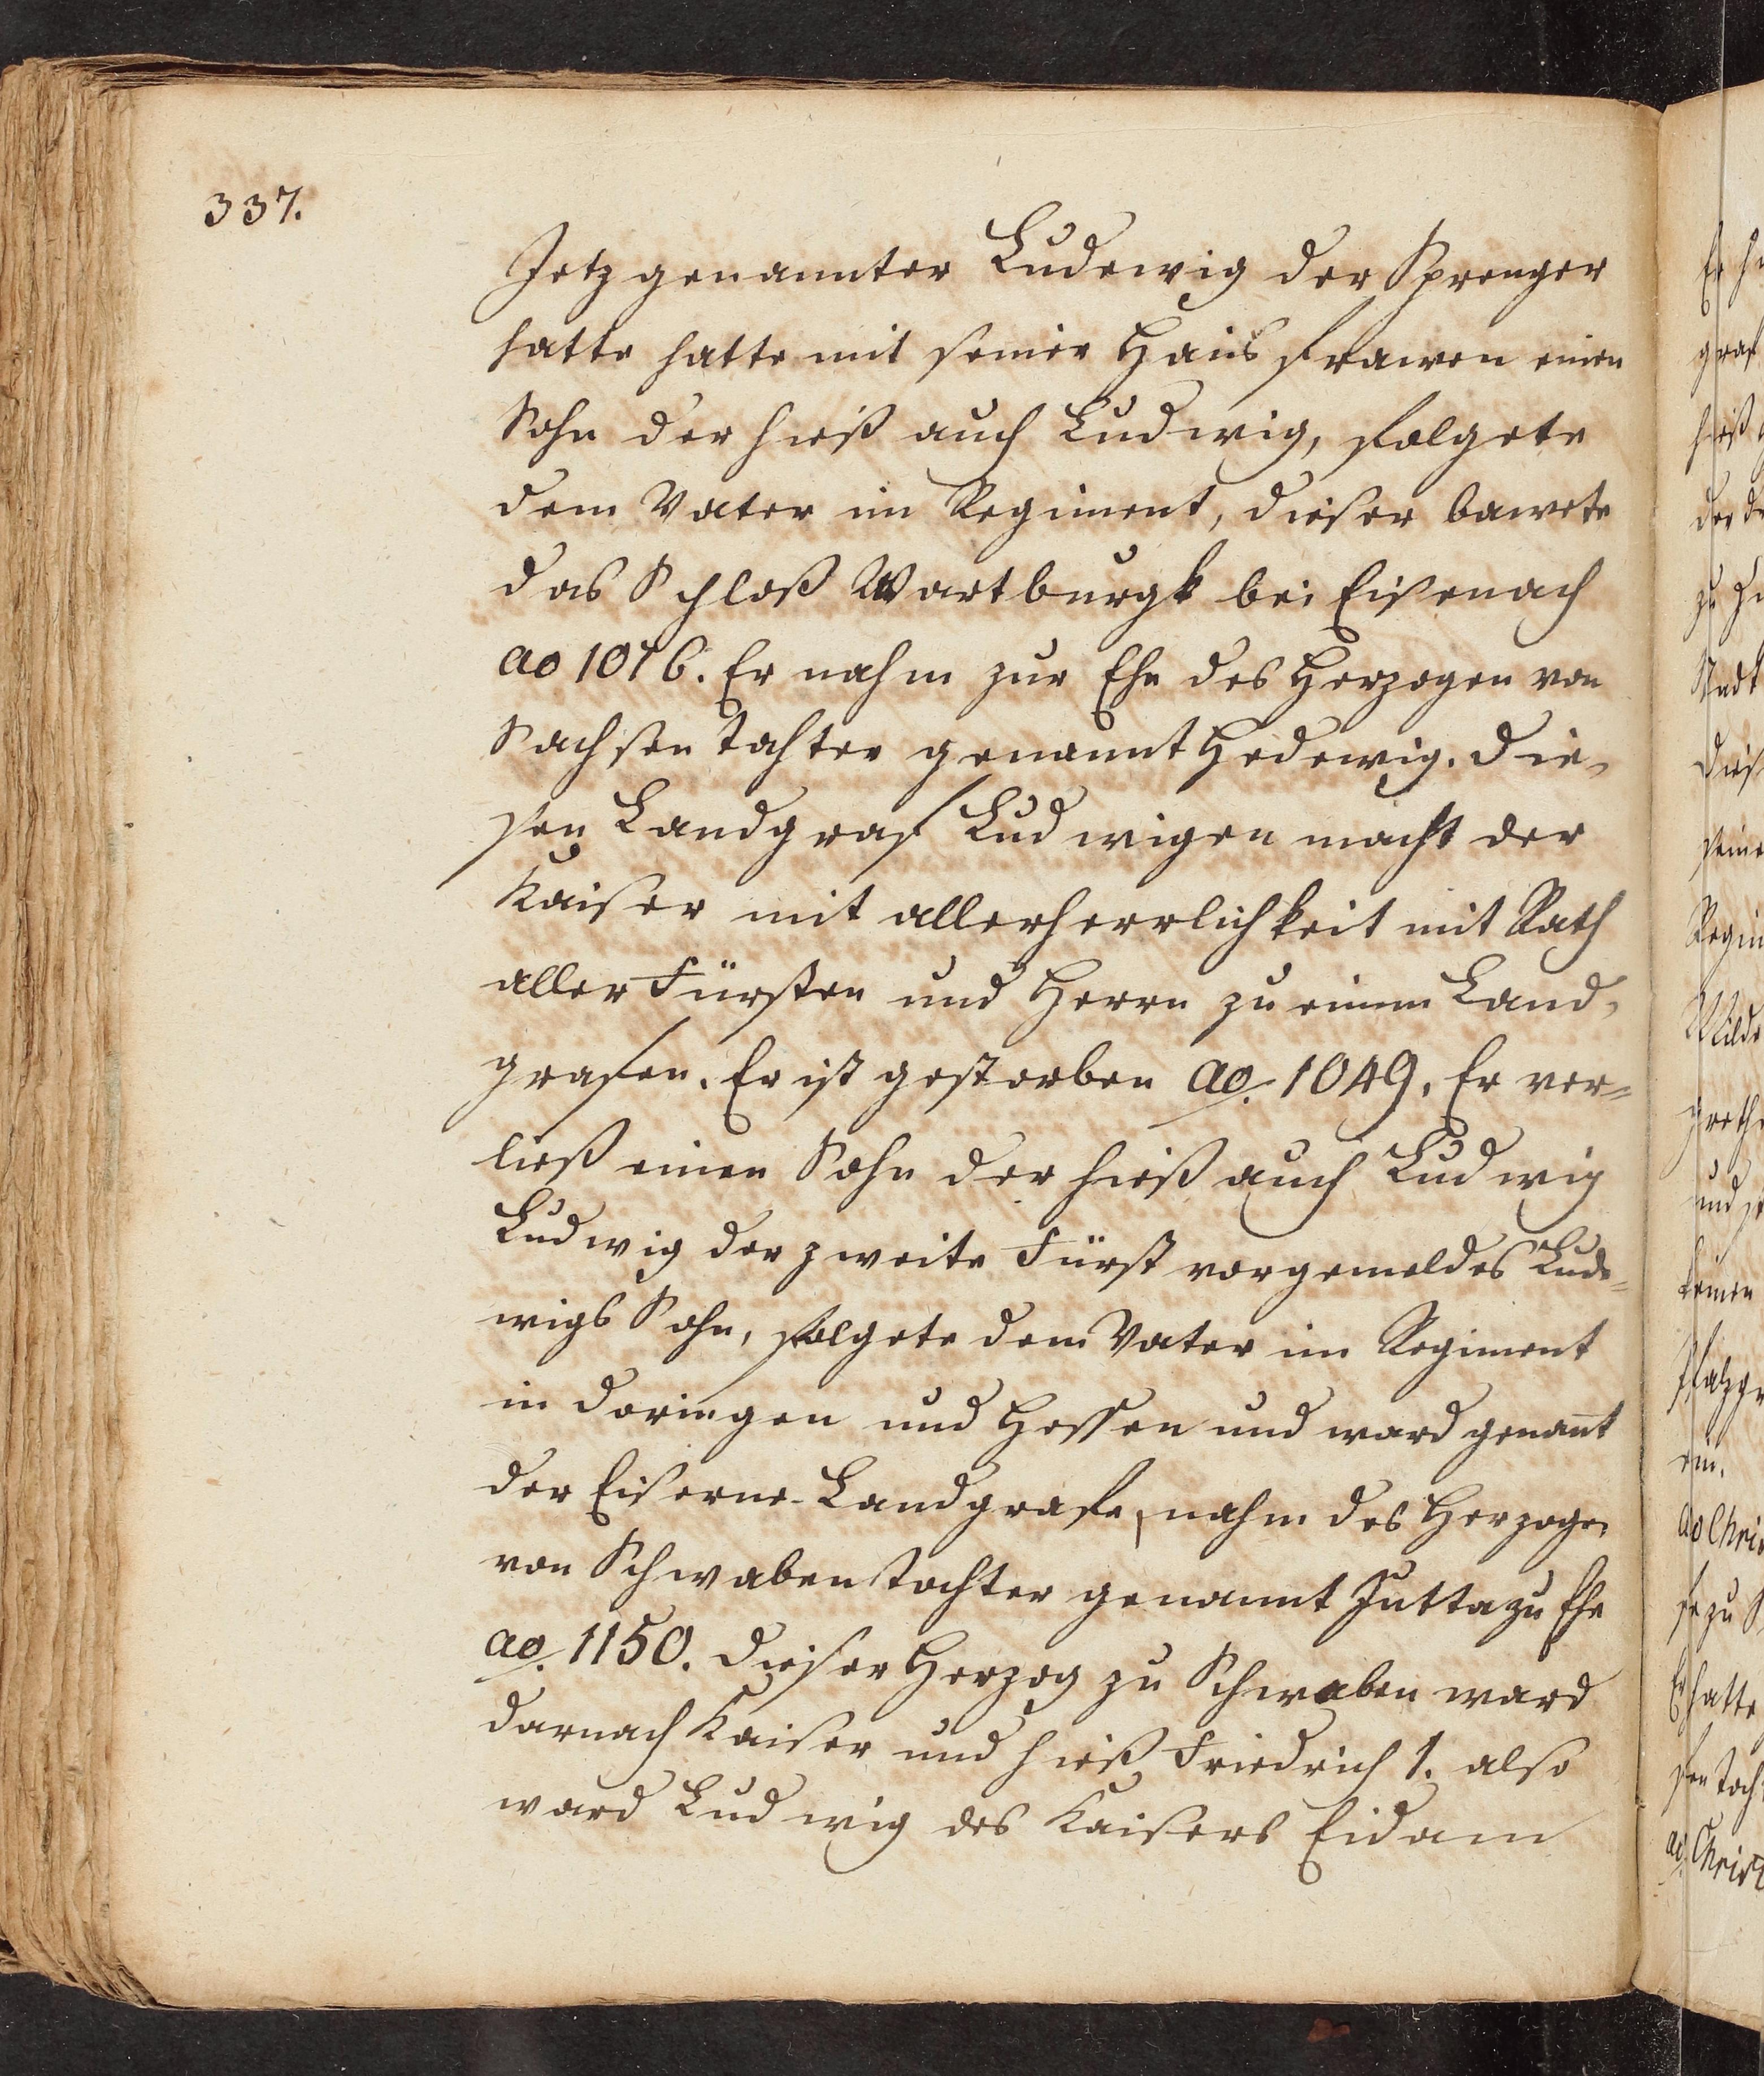 337.
Jetzgenannter Ludewig der Sprenger
hatte hatte mit seiner Haus frawen einen
Sohn der hieß auch Ludwig, folgete
dem Vater im Regiment, dieser bawete
das Schloß Wartburgk bei Eisenach
ao 1076. Er nahm zur Ehe des Herzogen von
Sachsen Tochter genannt Hedewig. Die-
sen Landgraf Ludwigen macht der
Kaiser mit allerherrlichkeit mit Rath
aller Fürsten und Herrn zu einem Land-
grafen. Er ist gestorben ao. 1049. Er ver=
ließ einen Sohn der hieß auch Ludwig
Ludwig der zweite Fürst vorgemeldes Lude=
wigs Sohn, folgete dem Vater im Regiment
in Doringen und Hessen und ward genant
der Eiserne-Landgrafe, nahm des Herzogen
von Schwaben Tochter genannt Jutta zu Ehe
ao. 1150. Dieser Herzog zu Schwaben ward
darnach Kaiser und hieß Friedrich 1. also
ward Ludwig des Kaisers Eidam